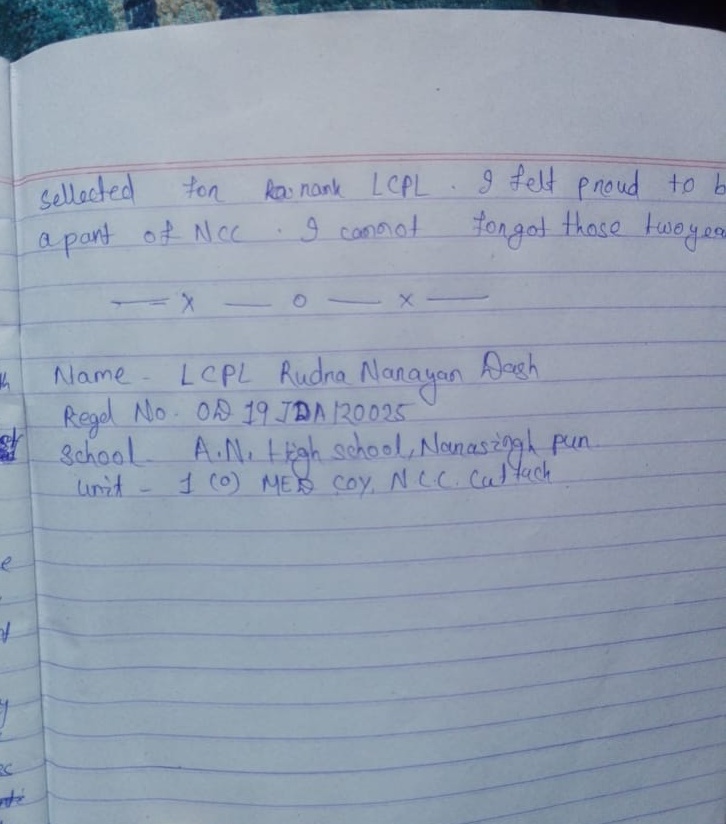 Sellected for rank LCPL. I felt proud to b
a part of NCC. I cannot forgot those two yea
— x — o — x —
Name - LCPL Rudra Narayan Dash
Regd No. OD 19 JDA 120025
School - A.N. High school, Narasingh pur.
unit - 1 (O) MED COY, N.C.C. Cuttack